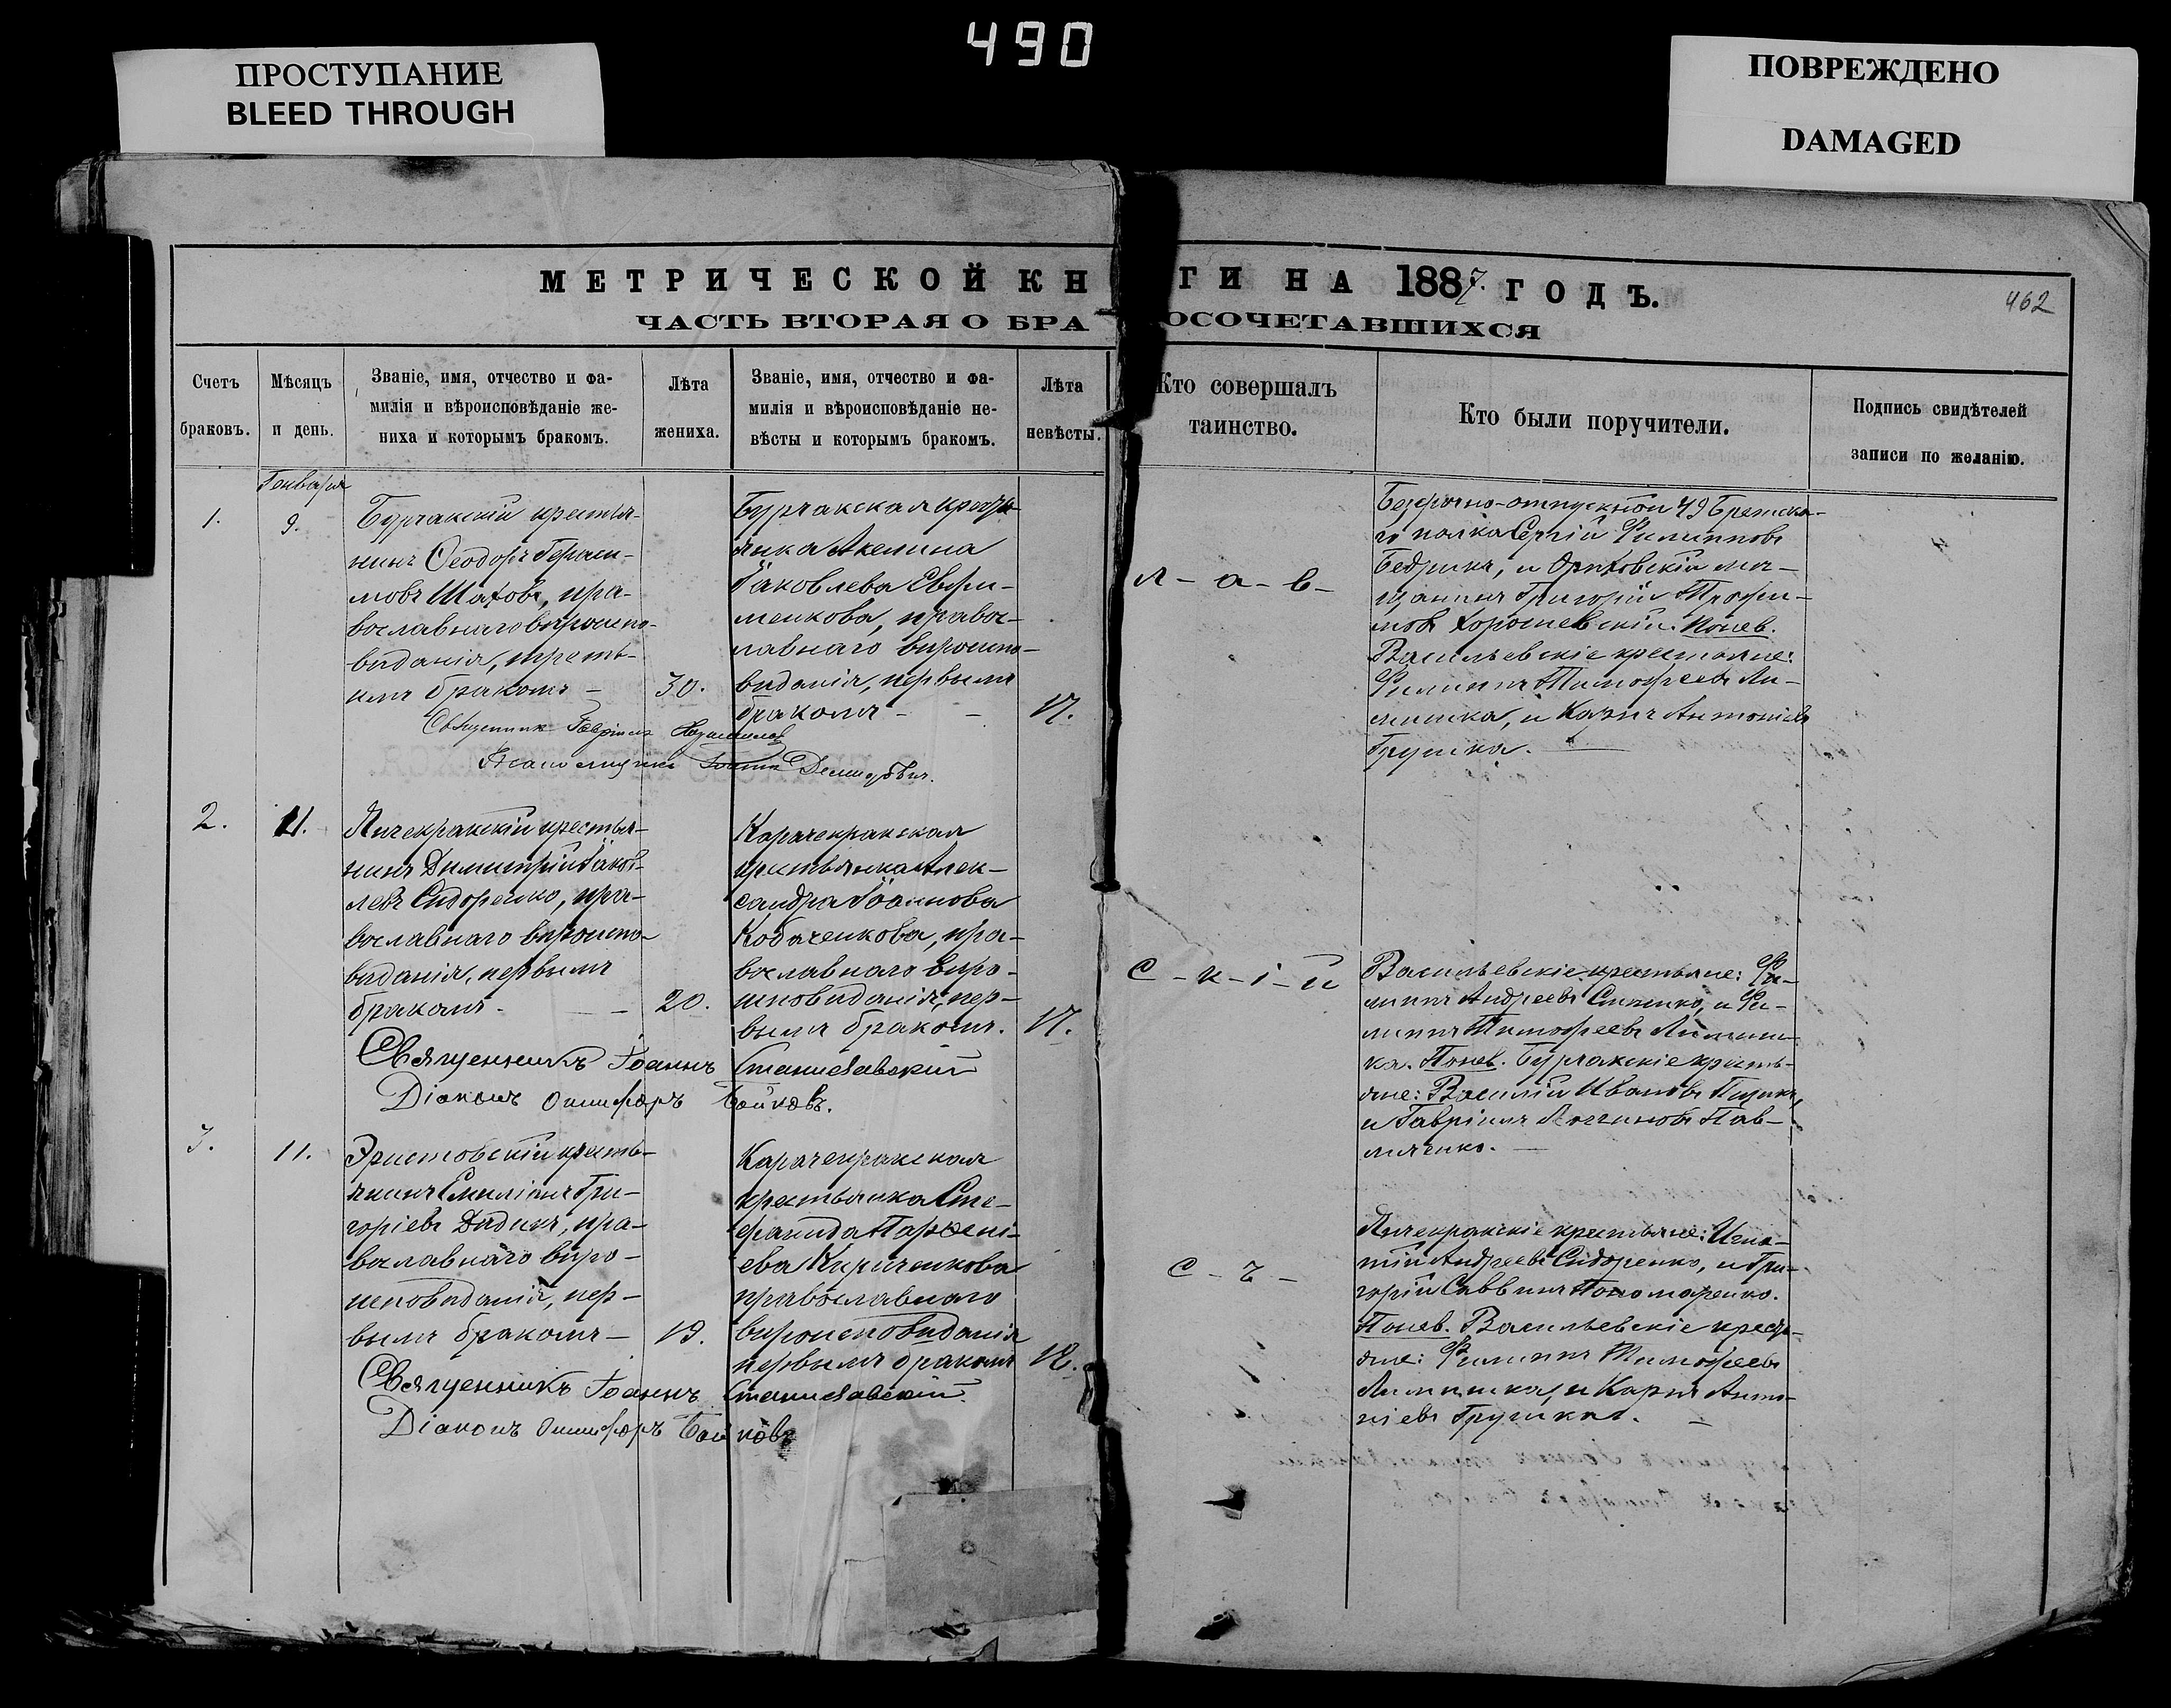 490
ПРОСТУПАНИЕ
BLEED THROUGH
ПОВРЕЖДЕНО
DAMAGED
МЕТРИЧЕСКОЙ КН ГИ НА 1887. ГОДЪ.
462
ЧАСТЬ ВТОРАЯ О БРА ОСОЧЕТАВШИХСЯ
Счетъ
браковъ.
Мѣсяцъ
и день.
Званіе, имя, отчество и фа-
милія и вѣроисповѣданіе же-
ниха и которымъ бракомъ.
Лѣта
жениха.
Званіе, имя, отчество и фа-
милія и вѣроисповѣданіе не-
вѣсты и которымъ бракомъ.
Лѣта
невѣсты.
Кто совершалъ
таинство.
Кто были поручители.
Подпись свидѣтелей
записи по желанію.
Генваря
1.
9.
Бурчакскій крестья-
нинъ Ѳеодоръ Гераси-
мовъ Шаховъ, пра-
вославнаго вѣроиспо-
вѣданія, треть-
имъ бракомъ –
30.
Бурчакская кресть-
янка Акелина
Іаковлева Ефри-
менкова, правос-
лавнаго вѣроиспо-
вѣданія, первымъ
бракомъ – –
17.
Священникъ Гавріилъ
л – а – в –
Безсрочно-отпускной 49 Брестска-
го полка Сергій Филипповъ
Бедрикъ, и Орѣховскій мѣ-
щанинъ Григорій Трофи-
мовъ Хорошевскій. Понев.
Васильевскіе крестьяне:
Филиппъ Тимофеевъ Ли-
пишка, и Карпъ Антоніевъ
Грушка.
2.
11.
Янчекракскій крестья-
нинъ Димитрій Іаков-
левъ Сидоренко, пра-
вославнаго вѣроиспо-
вѣданія, первымъ
бракомъ. –
20.
Карачекракская
крестьянка Алек-
сандра Іоаннова
Кобаченкова, пра-
вославнаго вѣро-
исповѣданія, пер-
вымъ бракомъ.
17.
Священникъ Іоаннъ Станиславскій
Діаконъ Онисифоръ Бойковъ.
с – к – і – й
Васильевскіе крестьяне: Фи-
липпъ Андреевъ и Фи-
липпъ Тимофеевъ
Понев. Бурчакскіе кресть-
яне: Василій Ивановъ
и Гавріилъ Логгиновъ Пав-
личенко. –
3.
11.
Эристовскій кресть-
янинъ Емиліанъ Гри-
горіевъ Дидикъ, пра-
вославнаго вѣро-
исповѣданія, пер-
вымъ бракомъ –
19.
Карачекракская
крестьянка Сте-
фанида Парѳені-
ева Кириченкова
православнаго
вѣроисповѣданія
первымъ бракомъ
18.
Священникъ Іоаннъ Станиславскій.
Діаконъ Онисифоръ Бойковъ
с – ъ –
Янчекракскіе крестьяне: Игна-
тій Андреевъ Сидоренко, и Гри-
горій Саввинъ Пономаренко.
Понев. Васильевскіе кресть-
яне: Филиппъ Тимофеевъ
и Карпъ Анто-
ніевъ Грушка. –